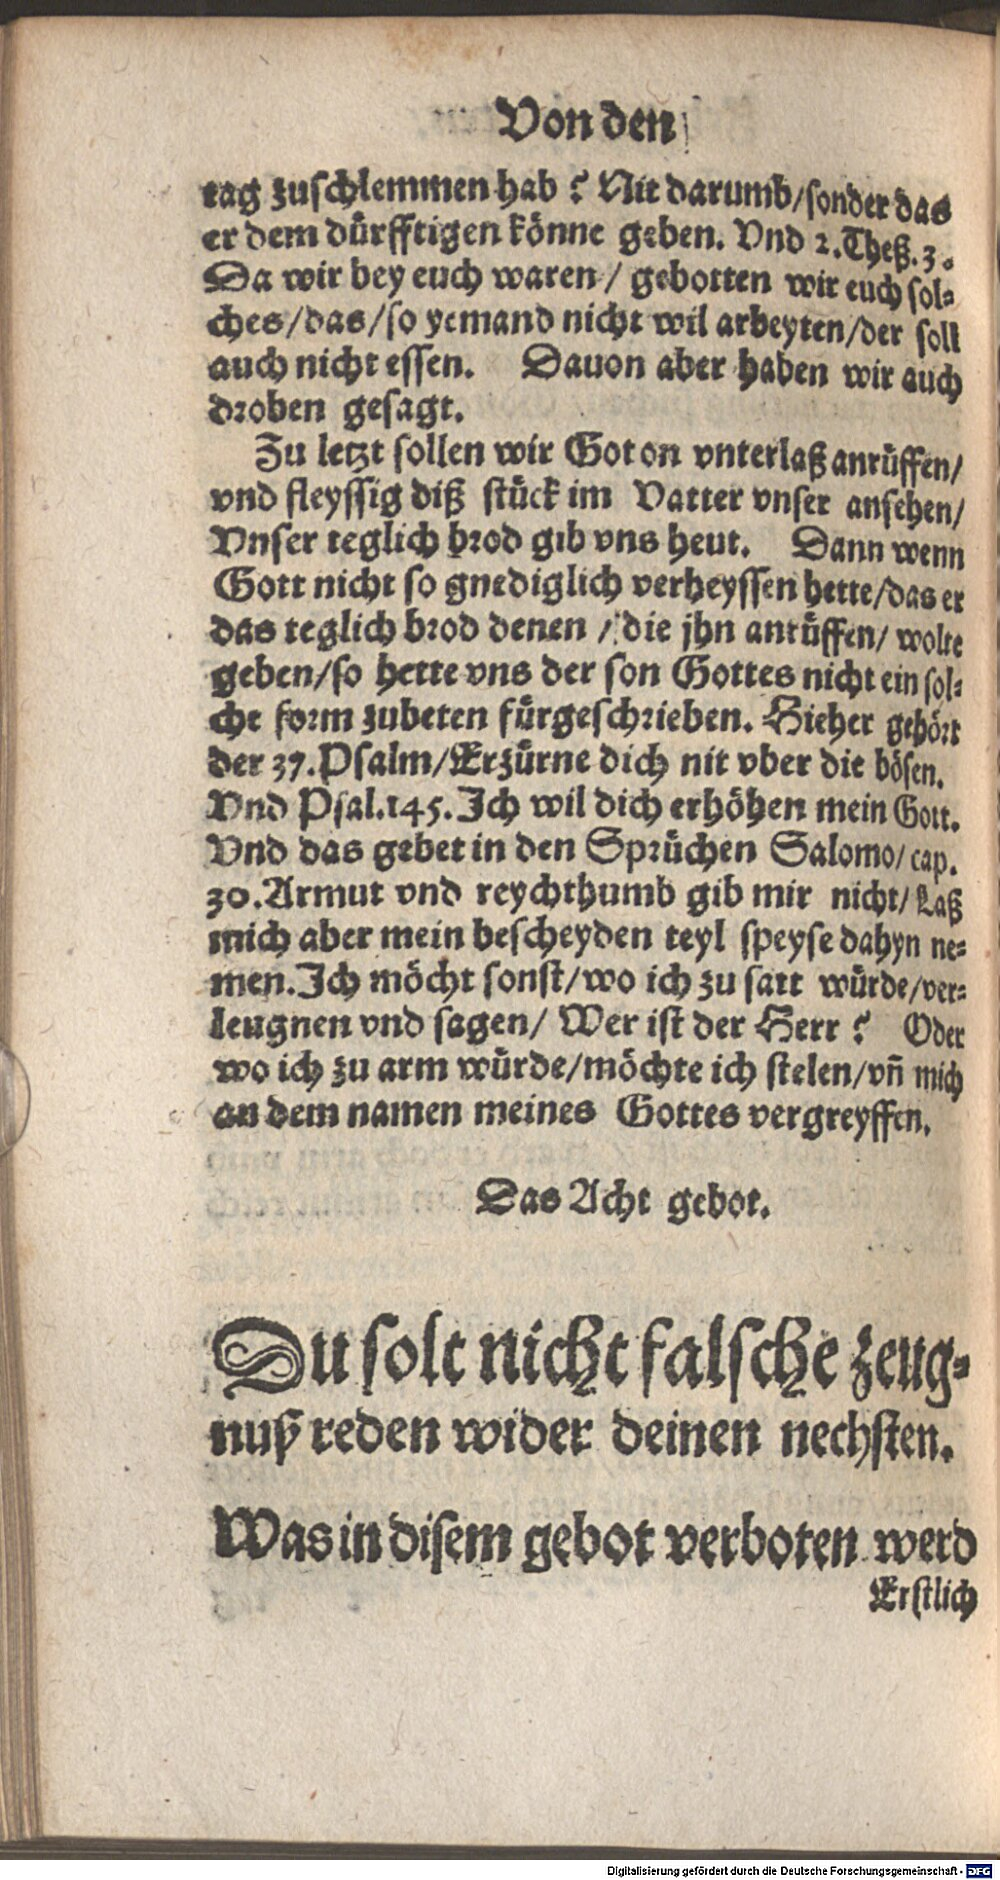 Von den
tag zuschlemmen hab? Nit darumb/sonder das
er dem dürfftigen könne geben. Vnd 2.Theß.3.
Da wir bey euch waren/ gebotten wir euch sol⸗
ches/das/so yemand nicht wil arbeyten/der soll
auch nicht essen. Dauon aber haben wir auch
droben gesagt.
Zu letzt sollen wir Got on vnterlaß anrüffen/
vnd fleyssig diß stück im Vatter vnser ansehen/
Vnser teglich brod gib vns heut. Dann wenn
Gott nicht so gnediglich verheyssen hette/das er
das teglich brod denen / die jhn anrüffen/ wolte
geben/so hette vns der son Gottes nicht ein sol⸗
che form zubeten fürgeschrieben. Hieher gehört
der 37.Psalm/Erzürne dich nit vber die bösen.
Vnd Psal.145.Ich wil dich erhöhen mein Gott.
Vnd das gebet in den Sprüchen Salomo/ cap.
30.Armut vnd reychthumb gib mir nicht/ Laß
mich aber mein bescheyden teyl speyse dahyn ne⸗
men.Ich möcht sonst/wo ich zu satt würde/ver⸗
leugnen vnd sagen/ Wer ist der Herr? Oder
wo ich zu arm würde/möchte ich stelen/vñ mich
an dem namen meines Gottes vergreyffen.
Das Acht gebot.
Du solt nicht falsche zeug⸗
nuß reden wider deinen nechsten.
Was in disem gebot verboten werd
Erstlich
Digitalisierung gefördert durch die Deutsche Forschungsgemeinschaft - DFG